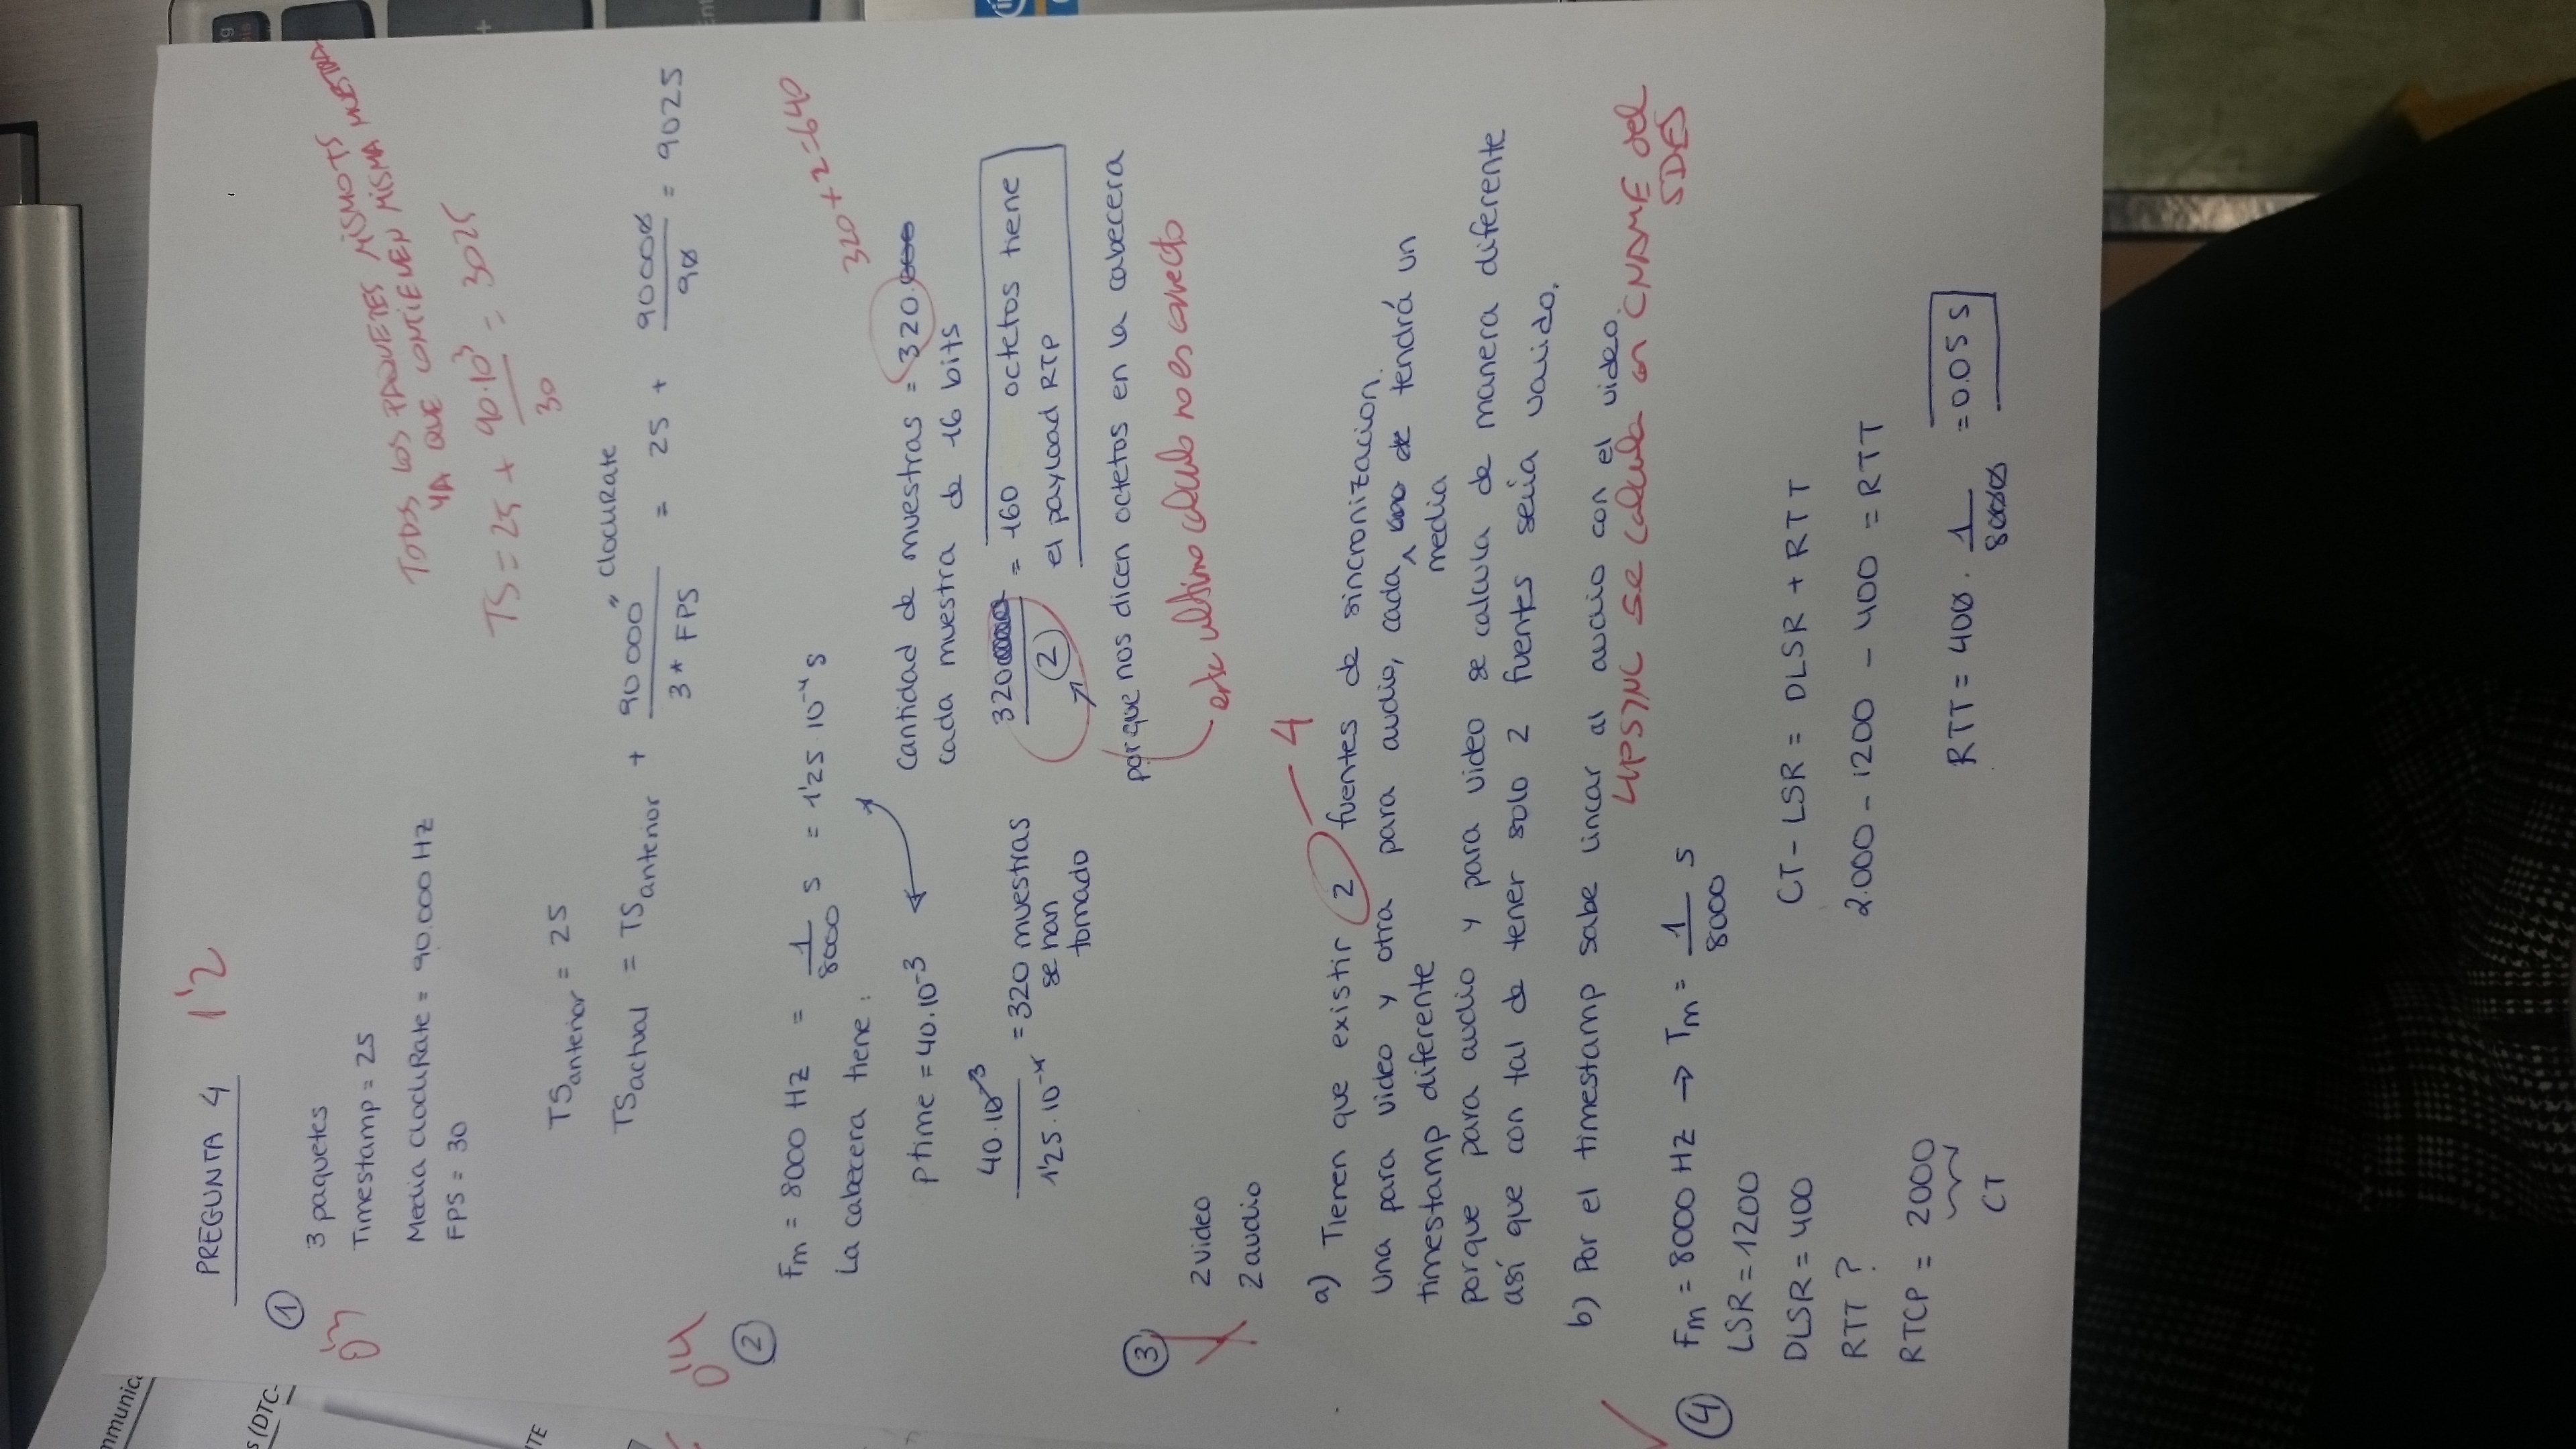 mmunica
s (DTC-
NTE
PREGUNTA 4 1'2
①
0'3
3 paquetes
Timestamp = 25
Media ClockRate = 90.000 HZ
FPS = 30
TODOS LOS PAQUETES MISMO TS
YA QUE CONTIENEN MISMA MUESTRA
TS = 25 + 90·10³ / 30 = 3025
TSanterior = 25
TSactual = TSanterior + 90000 " ClockRate / 3 * FPS = 25 + 90000 / 90 = 9025
0'4
②
Fm = 8000 HZ = 1/8000 s = 1'25·10⁻⁴ s
La cabecera tiene:
ptime = 40.10⁻³
40.10⁻³ / 1'25.10⁻⁴ = 320 muestras
se han
tomado
320 + 2 = 640
cantidad de muestras = 320.000
cada muestra de 16 bits
320 / 2 = 160 octetos tiene
el payload RTP
porque nos dicen octetos en la cabecera
este ultimo calculo no es correcto
③
2 video
2 audio
4
a) Tienen que existir 2 fuentes de sincronizacion.
Una para video y otra para audio, cada media uno de tendrá un
timestamp diferente
porque para audio y para video se calcula de manera diferente
así que con tal de tener solo 2 fuentes sería valido.
b) Por el timestamp sabe lincar al audio con el video.
LIPSYNC se calcula con CNAME del
SDES
④
Fm = 8000 HZ → Tm = 1/8000 s
LSR = 1200
DLSR = 400
RTT ?
RTCP = 2000
CT
CT - LSR = DLSR + RTT
2.000 - 1200 - 400 = RTT
RTT = 400 · 1/8000 = 0.05 s